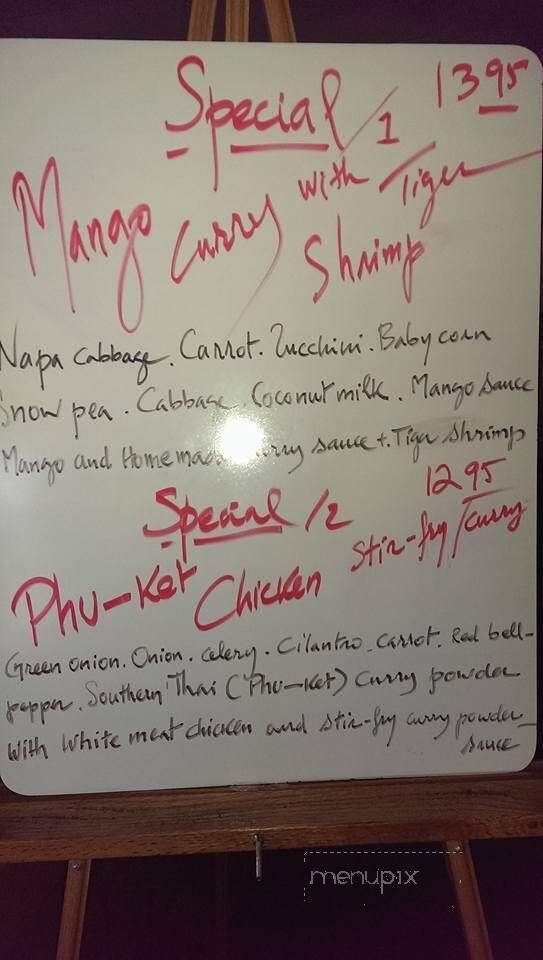 Special /1 13 95
Mango Curry with Tiger
Shrimp
Napa cabbage. Carrot. Zucchini. Baby corn
Snow pea. Cabbage. Coconut milk. Mango Sauce
Mango and Homemade curry sauce + Tiger Shrimp
Special /2 12 95
Phu-Ket Chicken Stir-fry/curry
Green onion. Onion. celery. Cilantro. carrot. Red bell-
pepper. Southern Thai ("Phu-Ket) Curry powder
With White meat chicken and stir-fry curry powder
sauce
menupix